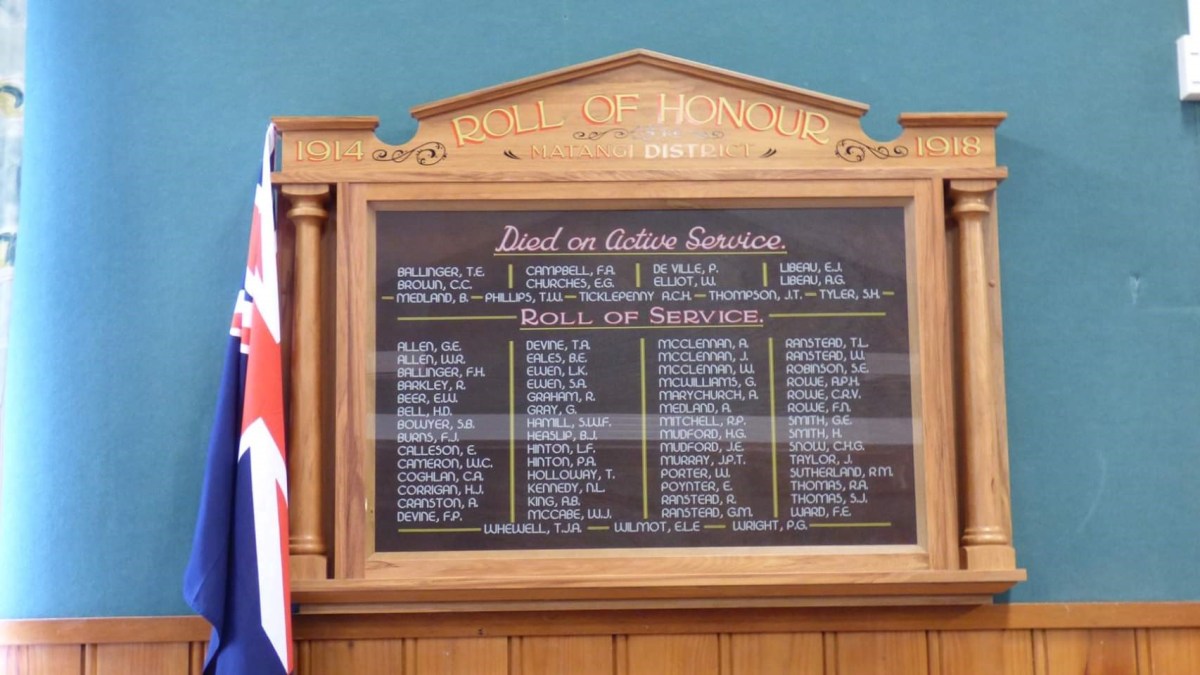 ROLL OF HONOUR
1914 MATANGI DISTRICT 1918
Died on Active Service.
BALLINGER, T.E. CAMPBELL, F.A. DE VILLE, P. LIBEAU, E.J.
BROWN, C.C. CHURCHES, E.G. ELLIOT, W. LIBEAU, A.G.
MEDLAND, B. — PHILLIPS, T.W. — TICKLEPENNY A.C.H. — THOMPSON, J.T. — TYLER, S.H.
ROLL OF SERVICE.
ALLEN, G.E. DEVINE, T.A. MCCLENNAN, A. RANSTEAD, T.L.
ALLEN, W.R. EALES, B.E. MCCLENNAN, J. RANSTEAD, W.
BALLINGER, F.H. EWEN, L.K. MCCLENNAN, W. ROBINSON, S.E.
BARKLEY, R. EWEN, S.A. MCWILLIAMS, G. ROWE, A.P.H.
BEER, E.W. GRAHAM, R. MARYCHURCH, A. ROWE, C.R.V.
BELL, H.D. GRAY, G. MEDLAND, A. ROWE, F.N.
BOWYER, S.B. HAMILL, S.W.F. MITCHELL, R.P. SMITH, G.E.
BURNS, F.J. HEASLIP, B.J. MUDFORD, H.G. SMITH, H.
CALLESON, E. HINTON, L.F. MUDFORD, J.E. SNOW, C.H.G.
CAMERON, W.C. HINTON, P.A. MURRAY, J.P.T. TAYLOR, J.
COGHLAN, C.A. HOLLOWAY, T. PORTER, W. SUTHERLAND, R.M.
CORRIGAN, H.J. KENNEDY, N.L. POYNTER, E. THOMAS, R.A.
CRANSTON, A. KING, A.B. RANSTEAD, R. THOMAS, S.J.
DEVINE, F.P. MCCABE, W.J. RANSTEAD, G.M. WARD, F.E.
WHEWELL, T.J.A. — WILMOT, E.L.E — WRIGHT, P.G.